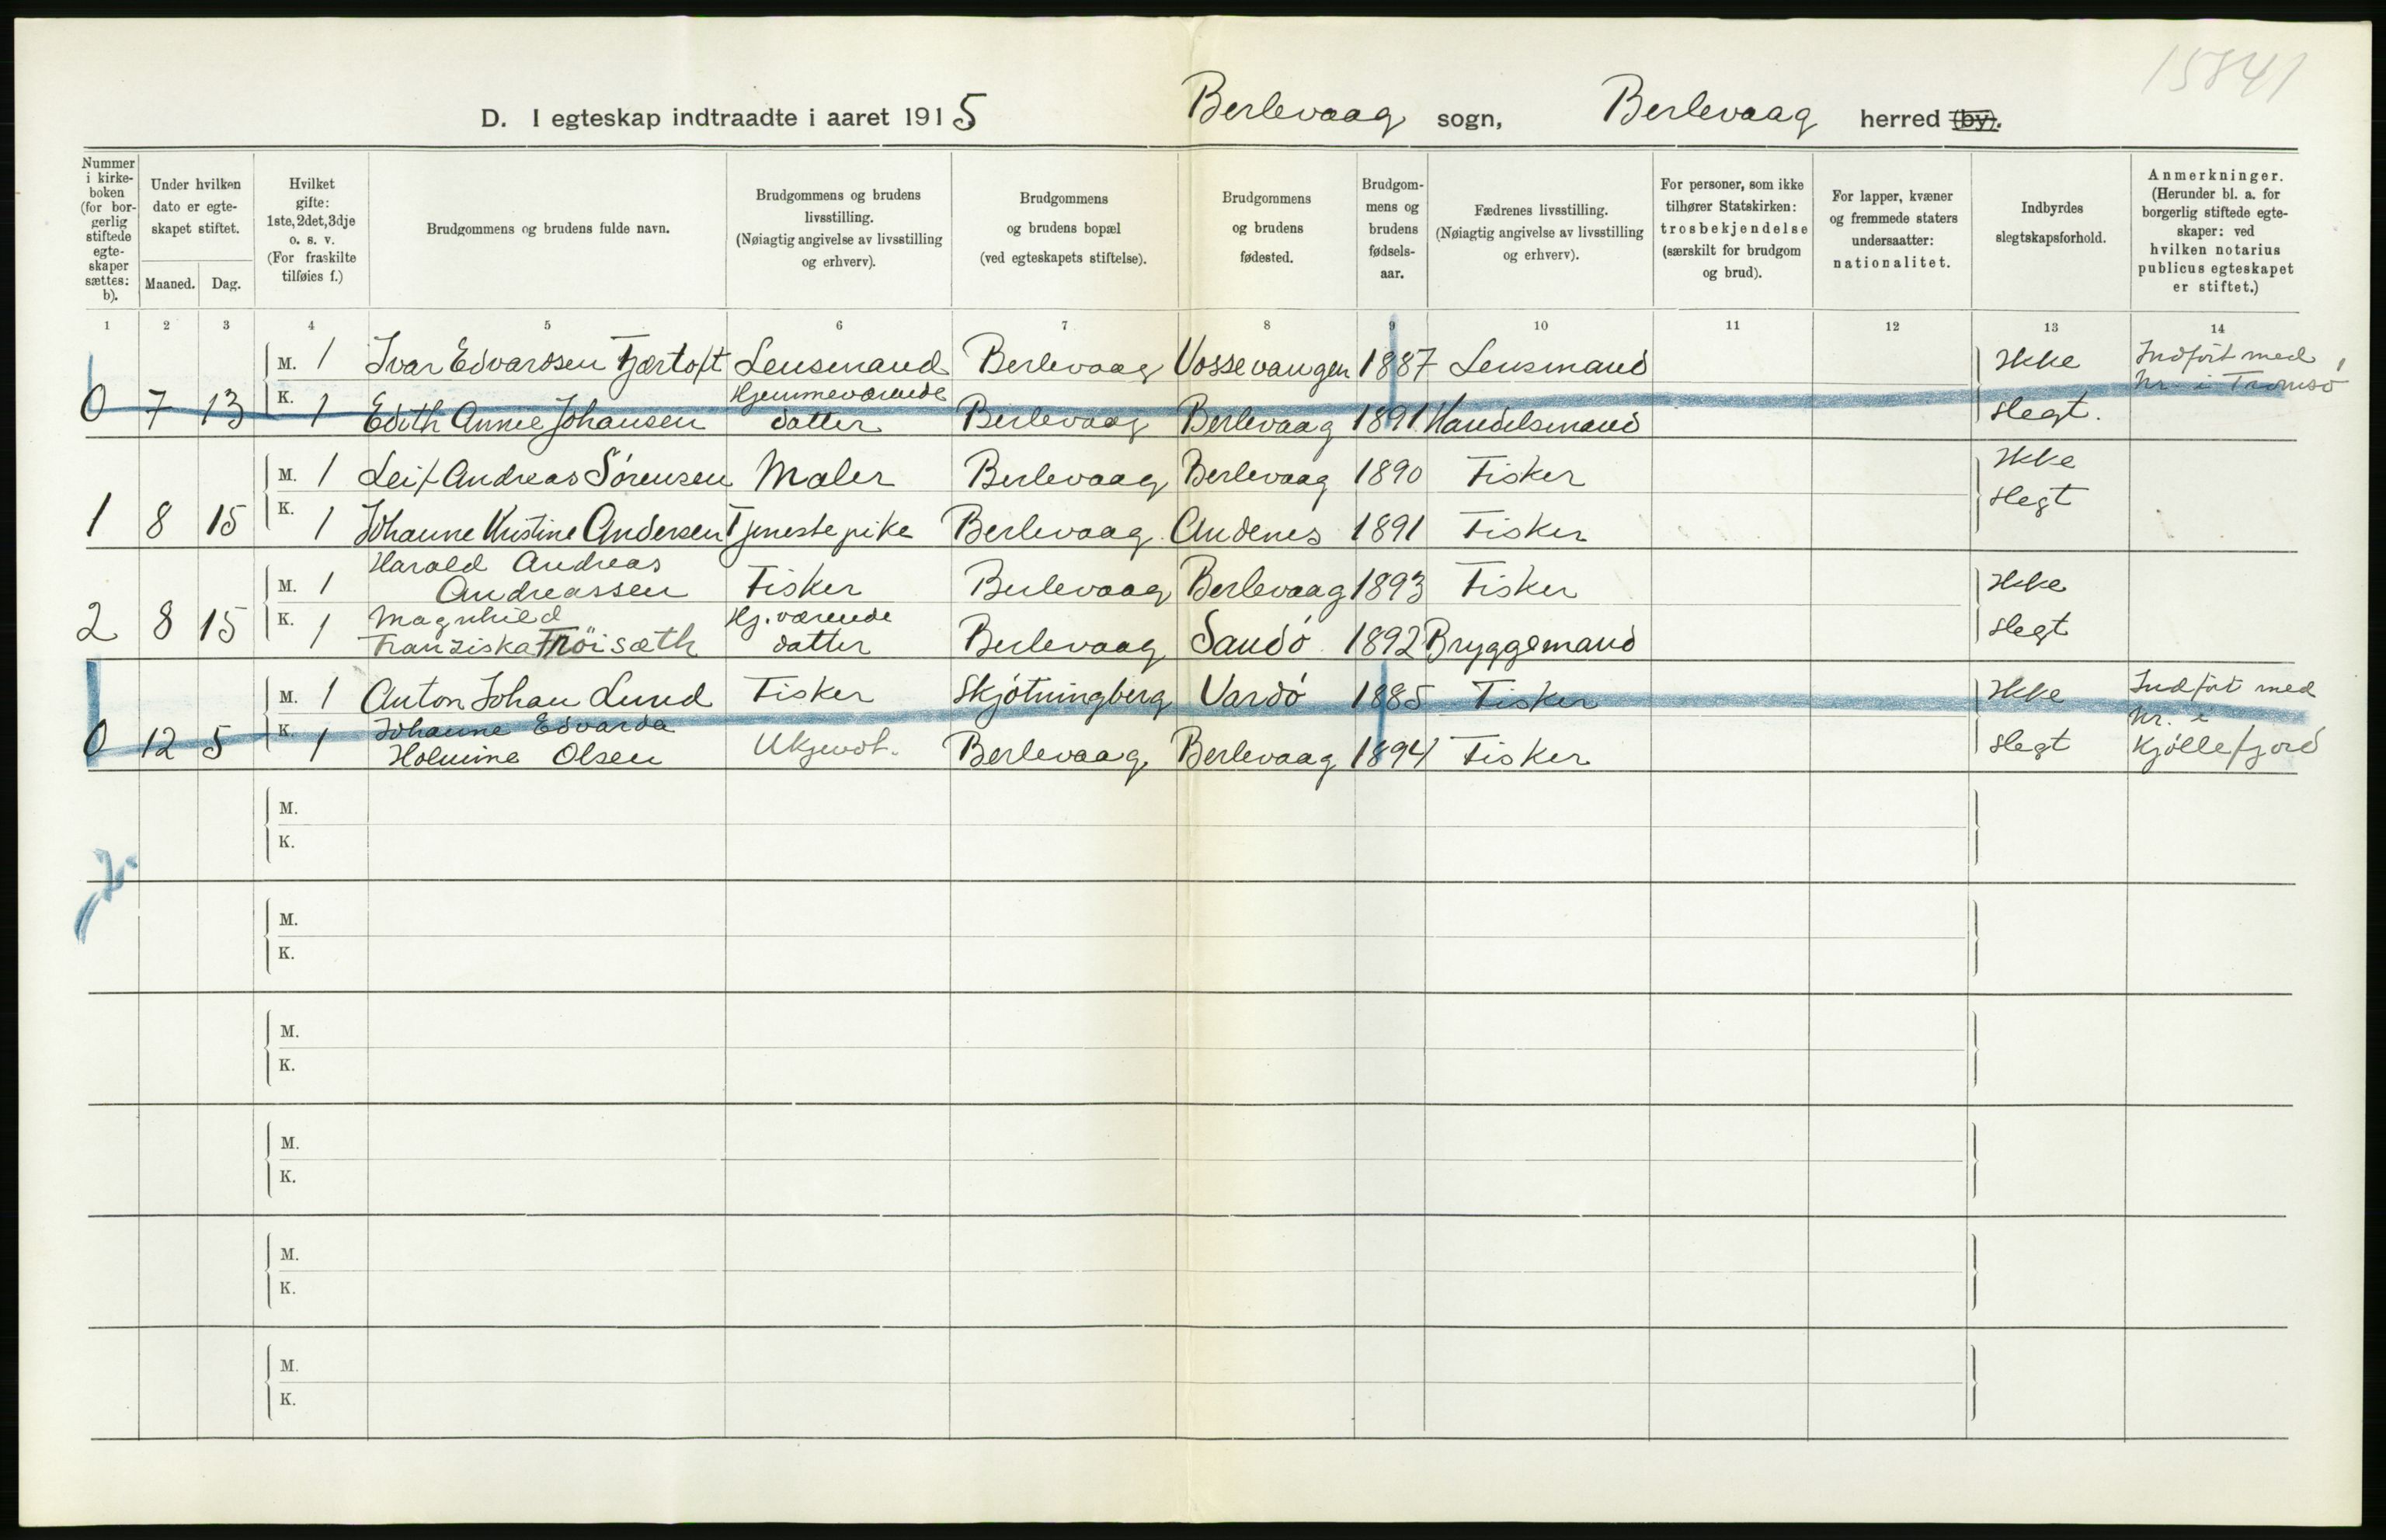 15841
D. I egteskap indtraadte i aaret 1915 Berlevaag sogn, Berlevaag herred (by).
Nummer i kirkeboken (for borgerlig stiftede egteskaper sættes: b).
Under hvilken dato er egteskapet stiftet.
Maaned. Dag.
Hvilket gifte: 1ste, 2det, 3dje o. s. v. (For fraskilte tilføies f.)
Brudgommens og brudens fulde navn.
Brudgommens og brudens livsstilling. (Nøiagtig angivelse av livsstilling og erhverv).
Brudgommens og brudens bopæl (ved egteskapets stiftelse).
Brudgommens og brudens fødested.
Brudgommens og brudens fødselsaar.
Fædrenes livsstilling. (Nøiagtig angivelse av livsstilling og erhverv).
For personer, som ikke tilhører Statskirken: trosbekjendelse (særskilt for brudgom og brud).
For lapper, kvæner og fremmede staters undersaatter: nationalitet.
Indbyrdes slegtskapsforhold.
Anmerkninger. (Herunder bl. a. for borgerlig stiftede egteskaper: ved hvilken notarius publicus egteskapet er stiftet.)
1 2 3 4 5 6 7 8 9 10 11 12 13 14
M. 1 Ivar Edvardsen Fjærtoft Lensmand Berlevaag Vossevangen 1887 Lensmand Ikke Indført med
0 7 13 K. 1 Edith Annie Johansen Hjemmeværende datter Berlevaag Berlevaag 1891 Handelsmand slegt. Nr. i Tromsö
M. 1 Leif Andreas Sörensen Maler Berlevaag Berlevaag 1890 Fisker Ikke
1 8 15 K. 1 Johanne Kristine Andersen Tjenestepike Berlevaag Andenes 1891 Fisker slegt
M. 1 Harald Andreas Andreassen Fisker Berlevaag Berlevaag 1893 Fisker Ikke
2 8 15 K. 1 Magnhild Franziska Tröisæth Hj.værende datter Berlevaag Sandö 1892 Bryggemand slegt
M. 1 Anton Johan Lund Fisker Skjötningberg Vardö 1885 Fisker Ikke Indført med
0 12 5 K. 1 Johanne Edvarda Holmine Olsen Ukjendt. Berlevaag Berlevaag 1894 Fisker slegt Nr. i Kjöllefjord
M.
K.
M.
K.
M.
K.
M.
K.
M.
K.
M.
K.